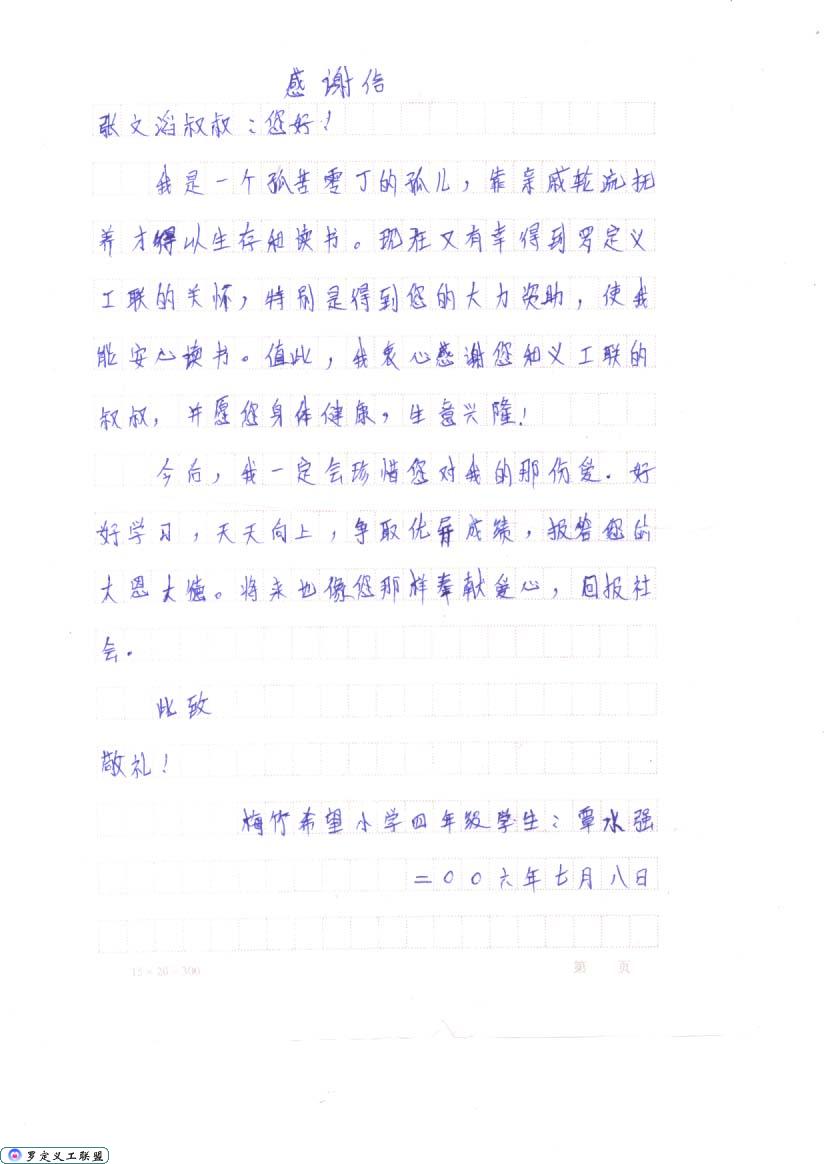 感谢信
张文滔叔叔：您好！
我是一个孤苦零丁的孤儿，靠亲戚轮流抚
养才得以生存和读书。现在又有幸得到罗定义
工联的关怀，特别是得到您的大力资助，使我
能安心读书。值此，我衷心感谢您和义工联的
叔叔，并愿您身体健康，生意兴隆！
今后，我一定会珍惜您对我的那份爱．好
好学习，天天向上，争取优异成绩，报答您的
大恩大德。将来也像您那样奉献爱心，回报社
会．
此致
敬礼！
梅竹希望小学四年级学生：覃水强
二００六年七月八日
15×20=300
第 页
罗定义工联盟